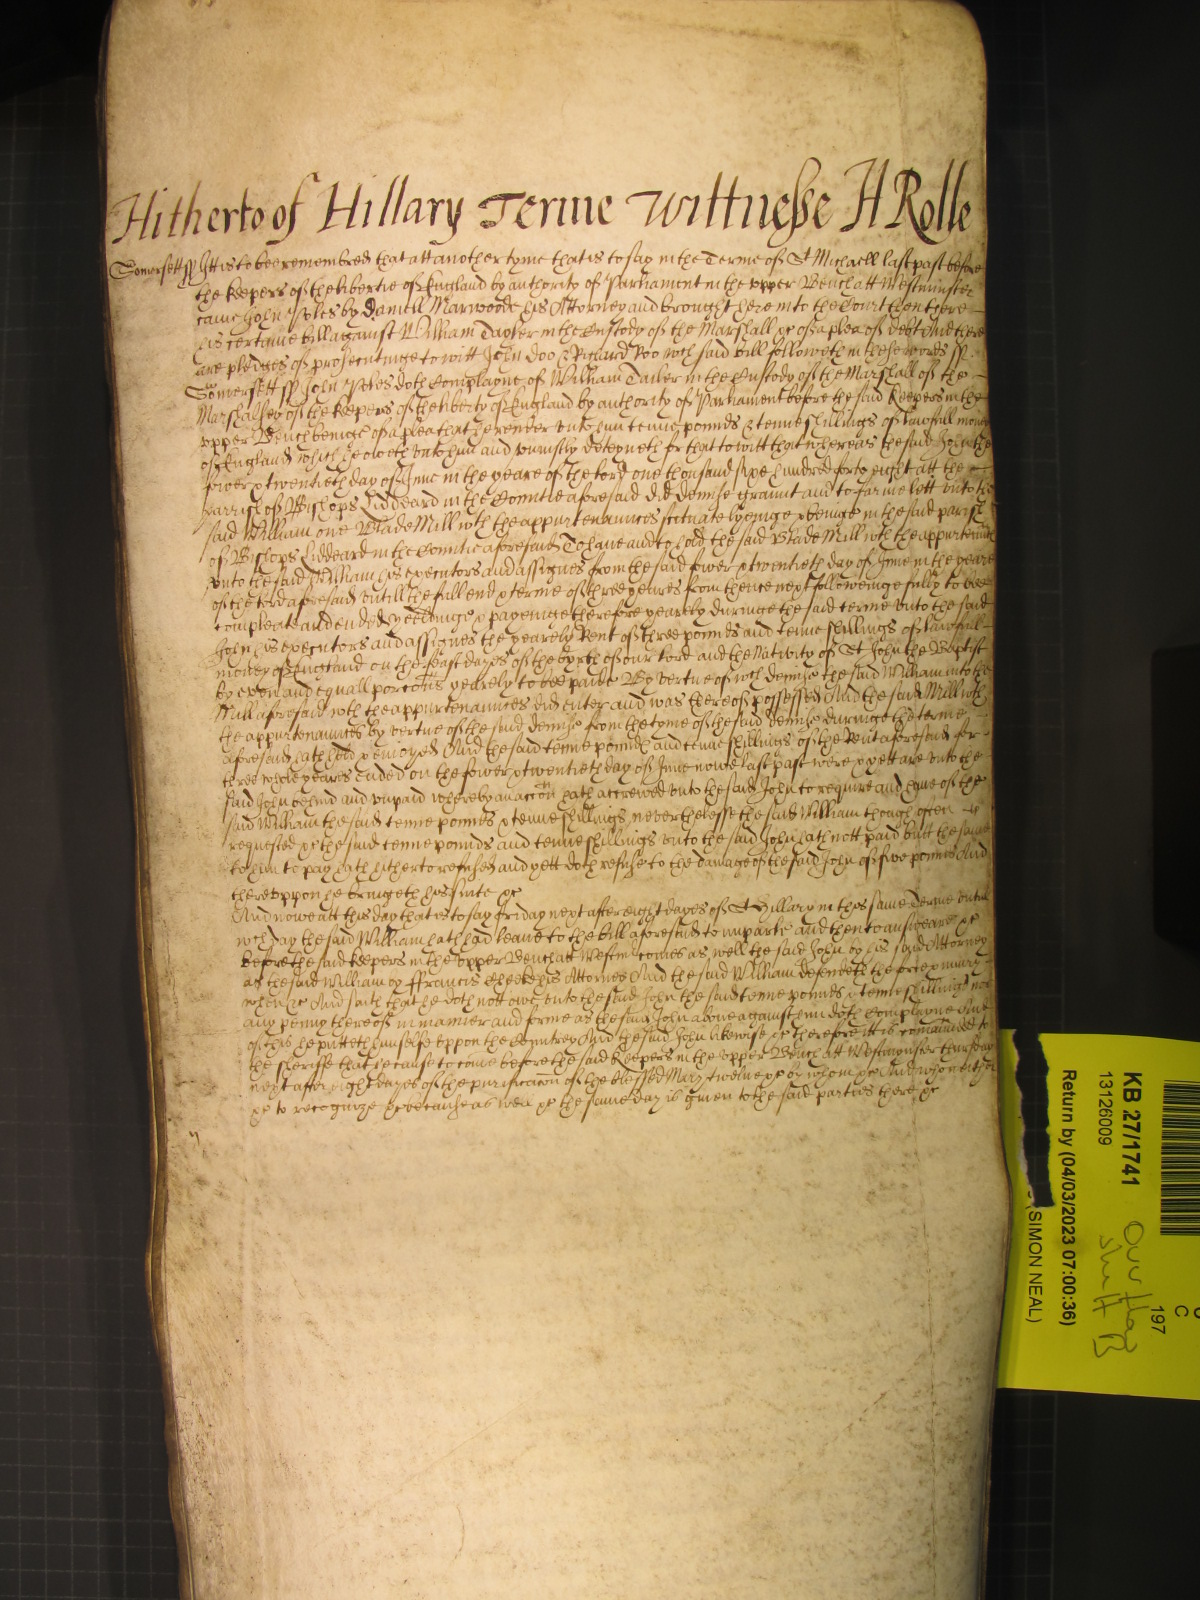 Hitherto of Hillary Terme Wittnesse H Rolle
Somersett ss Itt is to bee remembred that att another tyme that is to say in the Terme of St Michaell last past before
the Keepers of the libertie of England by authority of Parliament in the upper Bench att Westminster
came John by Daniell Marwoode his Attorney and brought here into the Court then there
his certaine bill against William Tayler in the Custody of the Marshall &c of a plea of debt And there
are pledges of prosecutinge to witt John Doo & Richard Roo wch said bill followeth in these words ss
Somersett ss John doth Complayne of William Tailer in the Custody of the Marshall of the
Marshalsey of the Keepers of the liberty of England by authority of Parliament before the said Keepers in the
upper Bench beinge of a plea that he render unto him tenne pounds & tenne shillings of lawfull money
of England which he oweth unto him and uniustly deteyneth for that to witt that whereas the said John the
fower & twentieth day of June in the yeare of the lord one thousand sixe hundred forty eight att the
parrish of Bishops Liddeard in the Countie aforesaid did demise graunt and to farme lett unto the
said William one Blade Mill wth the appurtenaunces scituate lyeinge & beinge in the said parish
of Bishops Liddeard in the Countie aforesaid To have and to hold the said Blade Mill wth the appurtenances
unto the said William his executors and assignes from the said fower & twentieth day of June in the yeare
of the lord aforesaid untill the full end & terme of three yeares from thence next followeinge fully to bee
compleate and ended yeeldinge & payeinge therefore yearely duringe the said terme unto the said
John his executors and assignes the yearely Rent of three pounds and tenne shillings of lawfull
money of England on the feast dayes of the byrth of our lord and the Nativity of St John the Baptist
by even and equall porcons yearely to bee paide By vertue of wch demise the said William into the
Mill aforesaid wth the appurtenaunces did enter and was thereof possessed And the said Mill wth
the appurtenaunces by vertue of the said demise from the tyme of the said demise duringe the terme
aforesaid hath held & enioyed And the said tenne pounds and tenne shillings of the Rent aforesaid for
three whole yeares ended on the fower & twentieth day of June nowe last past were & yett are unto the
said John behind and unpaid whereby an accon hath accrewed unto the said John to require and have of the
said William the said tenne pounds & tenne shillings neverthelesse the said William though often
requested &c the said tenne pounds and tenne shillings unto the said John hath nott paid butt the same
to him to pay hath hitherto refused and yett doth refuse to the damage of the said John of five pounds And
thereuppon he bringeth his suite &c
And nowe att this day that is to say friday next after eight dayes of St Hillary in this same Terme untill
wch day the said William hath had leave to the bill aforesaid to imparle and then to answeare &c
before the said Keepers in the upper Bench att Westmr comes as well the said John by his said Attorney
as the said William by ffrancis Cheeke his Attorney And the said William defendeth the force & iniury
when &c And saith that he doth nott owe unto the said John the said tenne pounds & tenne shillings nor
any penny thereof in manner and forme as the said John above against him doth Complayne And
of this he putteth himselfe uppon the Countrey And the said John likewise &c therefore itt is comaunded to
the Sheriffe that he cause to come before the said Keepers in the upper Bench att Westminster thursday
next after eight dayes of the purificacon of the blessed Mary twelve &c by whom &c And who neither
&c to recognize &c because as well &c the same day is given to the said parties there &c
KB 27/1741
13126009
Return by (04/03/2023 07:00:36)
(SIMON NEAL)
197
C